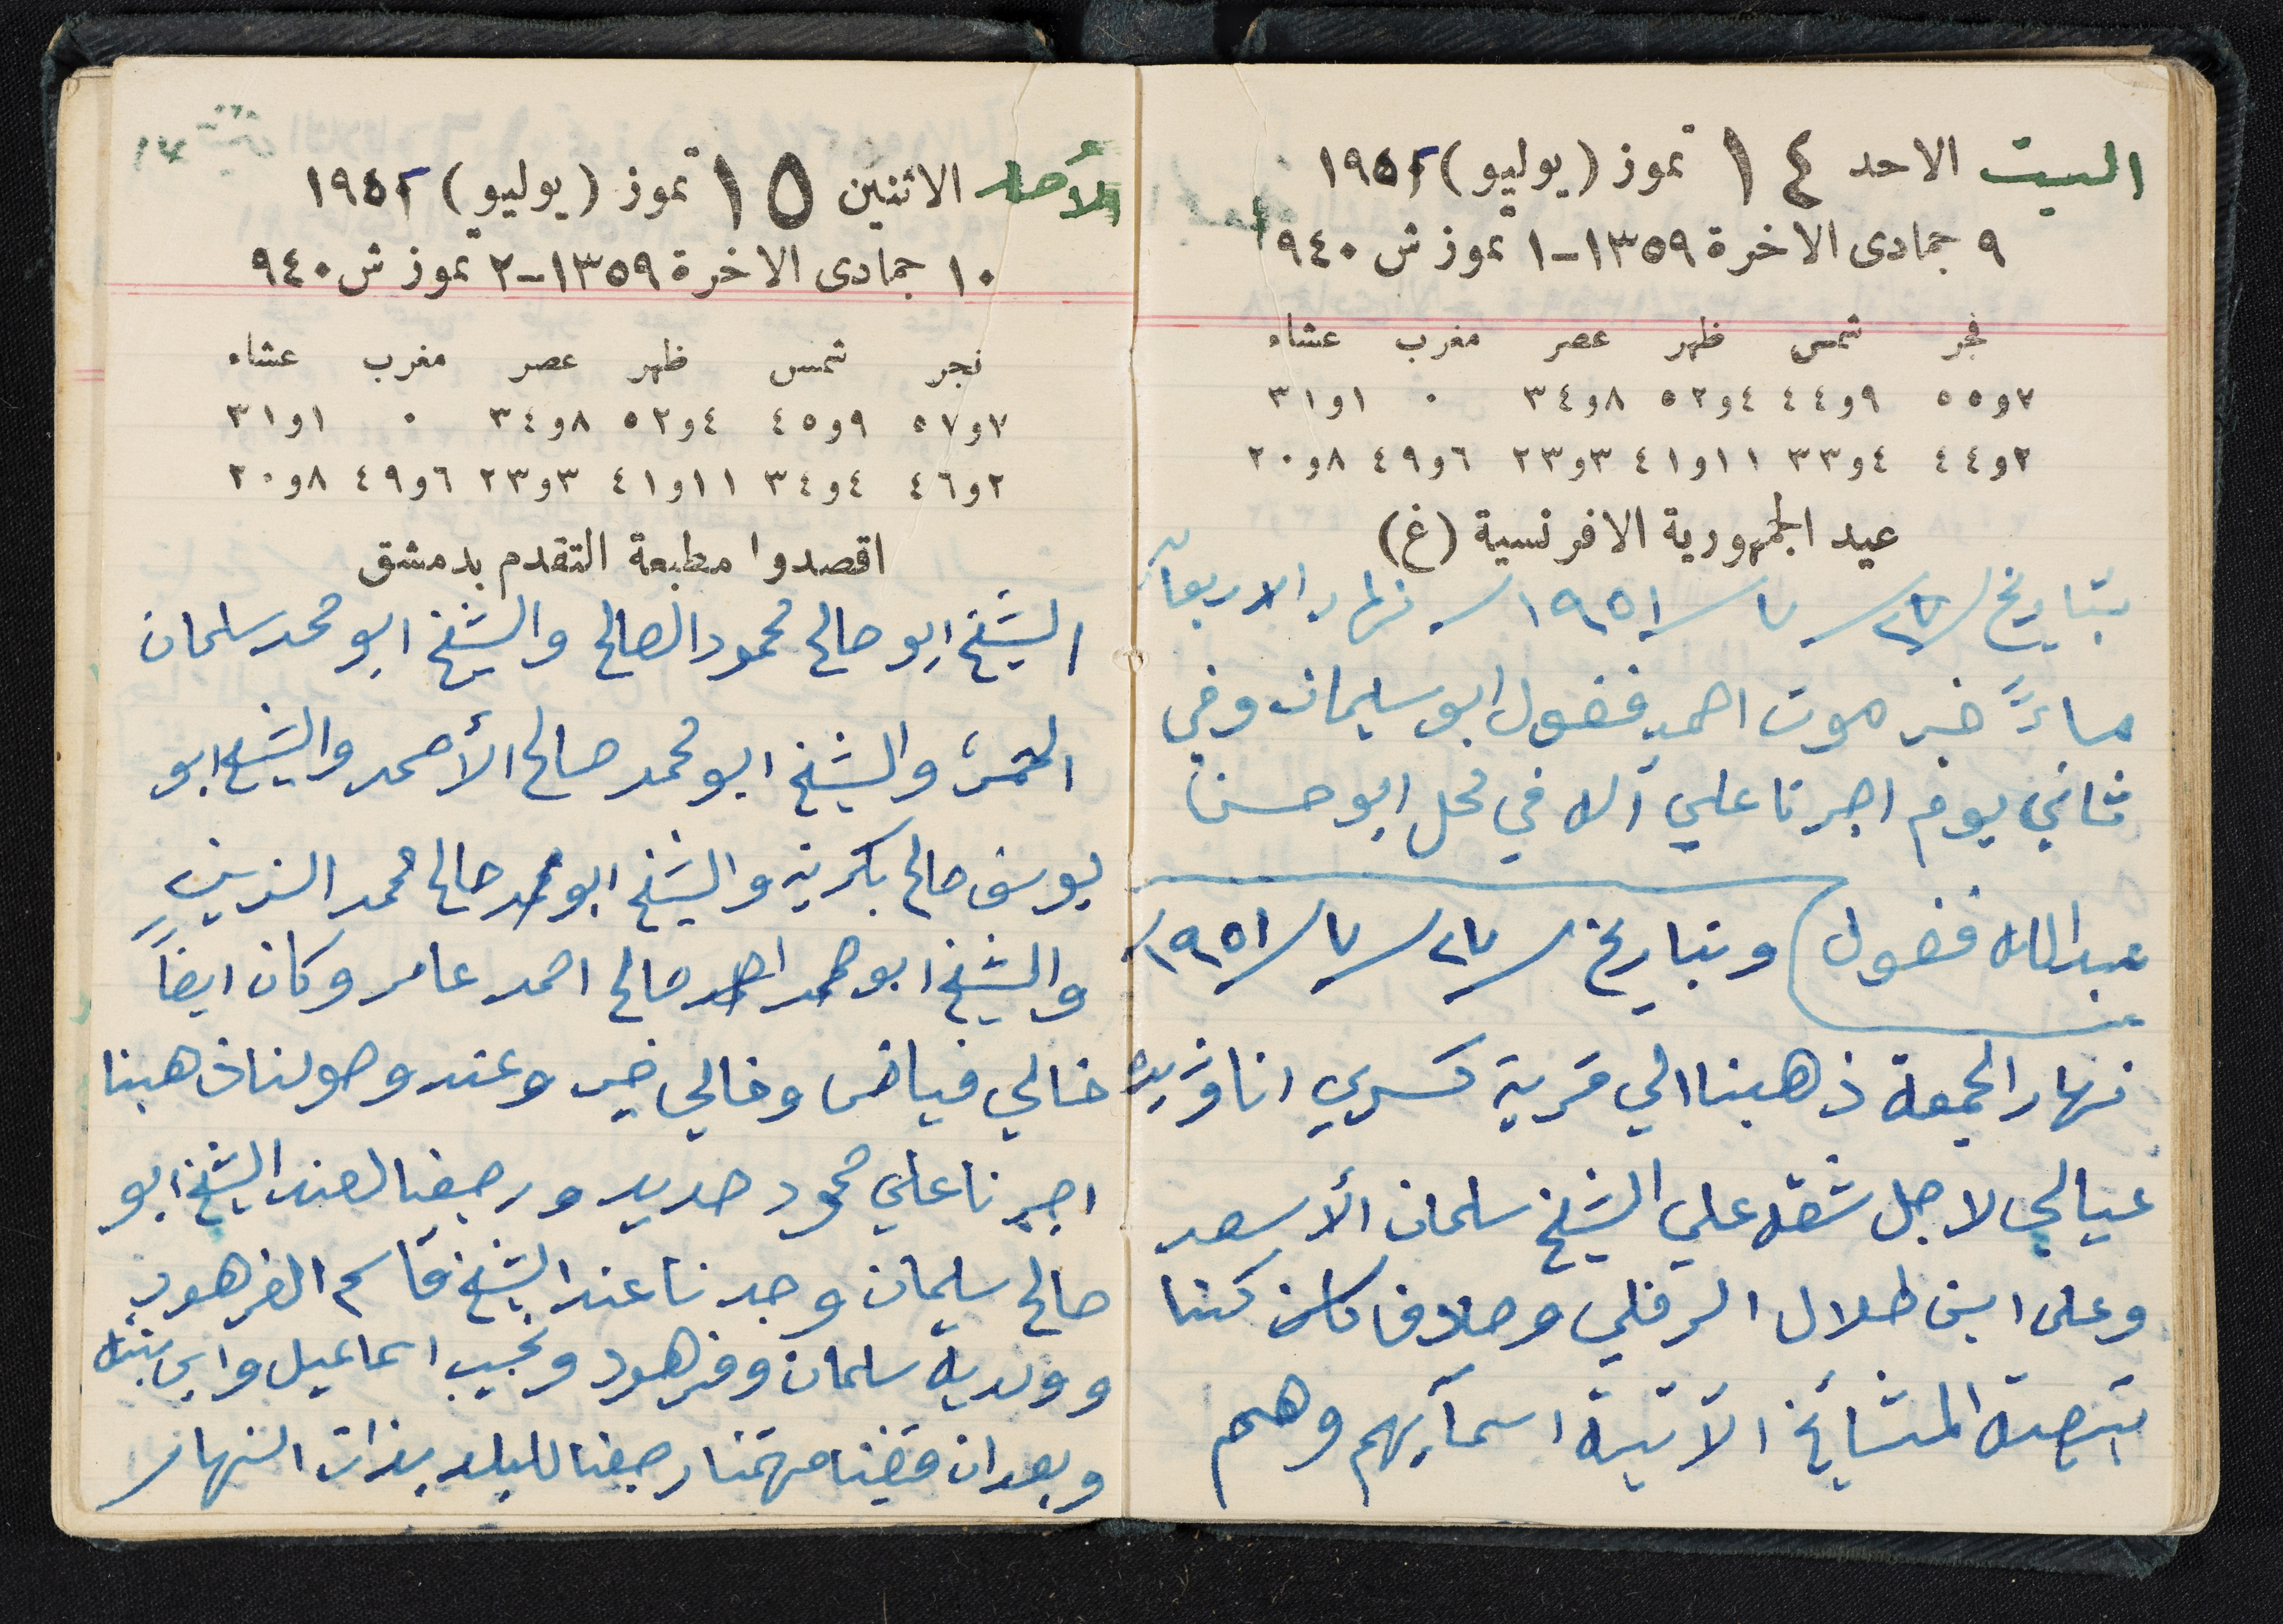 السبت الاحد ١٤ تموز (يوليو) ١٩٥٢
٩ جمادى الاخرة ١٣٥٩-١ تموز ش ٩٤٠
فجر شمس ظهر عصر مغرب عشاء
٧و٥٥ ٩و٤٤ ٤و٥٢ ٨و٣٤ ٠ ١و٣١
٢و٤٤ ٤و٣٣ ١١و٤١ ٣و٢٣ ٦و٤٩ ٨و٢٠
عيد الجمهورية الافرنسية (غ)
بتاريخ / / ٧ / ١٩٥١ / نهار الاربعاء
مساءً خبر موت احمد فضول ابو سليمان وفي
ثاني يوم اجرنا علي آله في محل ابو حسن
عبدالله فضول وبتاريخ / ٢٧ / ٧ / ١٩٥١ /
نهار الجمعة ذهبنا الي قرية كسري انا وفريده
عيالي لاجل شقه علي الشيخ سلمان الأسعد
وعلى ابن طلال الرفلي وصادف كنا
بمعية المشايخ الآتية اسمآيهم وهم
الأحد الاثنين ١٥ تموز (يوليو) ١٩٥٢
١٠ جمادى الاخرة ١٣٥٩-٢ تموز ش ٩٤٠
فجر شمس ظهر عصر مغرب عشاء
٧و٥٧ ٩و٤٥ ٤و٥٢ ٨و٣٤ ٠ ١و٣١
٢و٤٦ ٤و٣٤ ١١و٤١ ٣و٢٣ ٦و٤٩ ٨و٢٠
اقصدوا مطبعة التقدم بدمشق
الشيخ ابو صالح محمود الصالح والشيخ ابو محمد سلمان
والشيخ ابو محمد صالح الأحمد والشيخ ابو
يوسف صالح بكريه والشيخ ابو محمد صالح محمد الزين
والشيخ ابو حمد احمد صالح احمد عامر وكان ايضاً
خالي فياض وخالي خير وعند وصولنا ذهبنا
اجرنا علي محمود حديد ورجعنا لعند الشيخ ابو
صالح سليمان وجدنا عند الشيخ قاسم الفرهود
وولديه سلمان وفرهود ونجيب اسماعيل وابن بنته
وبعد ان قضينا مهمتنا رجعنا للبلد بذات النهار